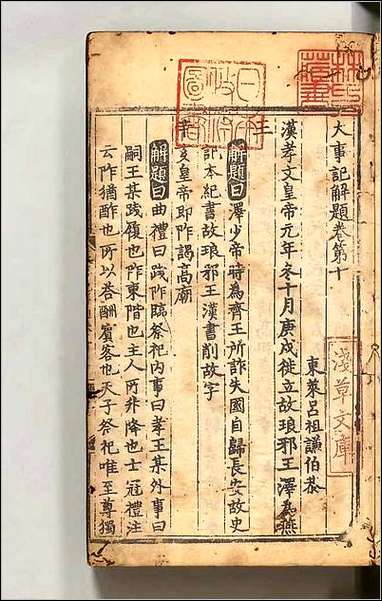 林氏藏書
日本政府圖書
大事記解題卷第十
東萊呂祖謙伯恭
淺草文庫
漢孝文皇帝元年冬十月庚戌徙立故琅邪王澤為燕
王
解題曰澤少帝時為齊王所詐失國自歸長安故史
記本紀書故琅邪王漢書削故字
辛亥皇帝即阼謁高廟
解題曰曲禮曰踐阼臨祭祀內事曰孝王某外事曰
嗣王某踐履也阼東階也主人所升降也士冠禮注
云阼猶酢也所以荅酬賓客也天子祭祀唯至尊獨